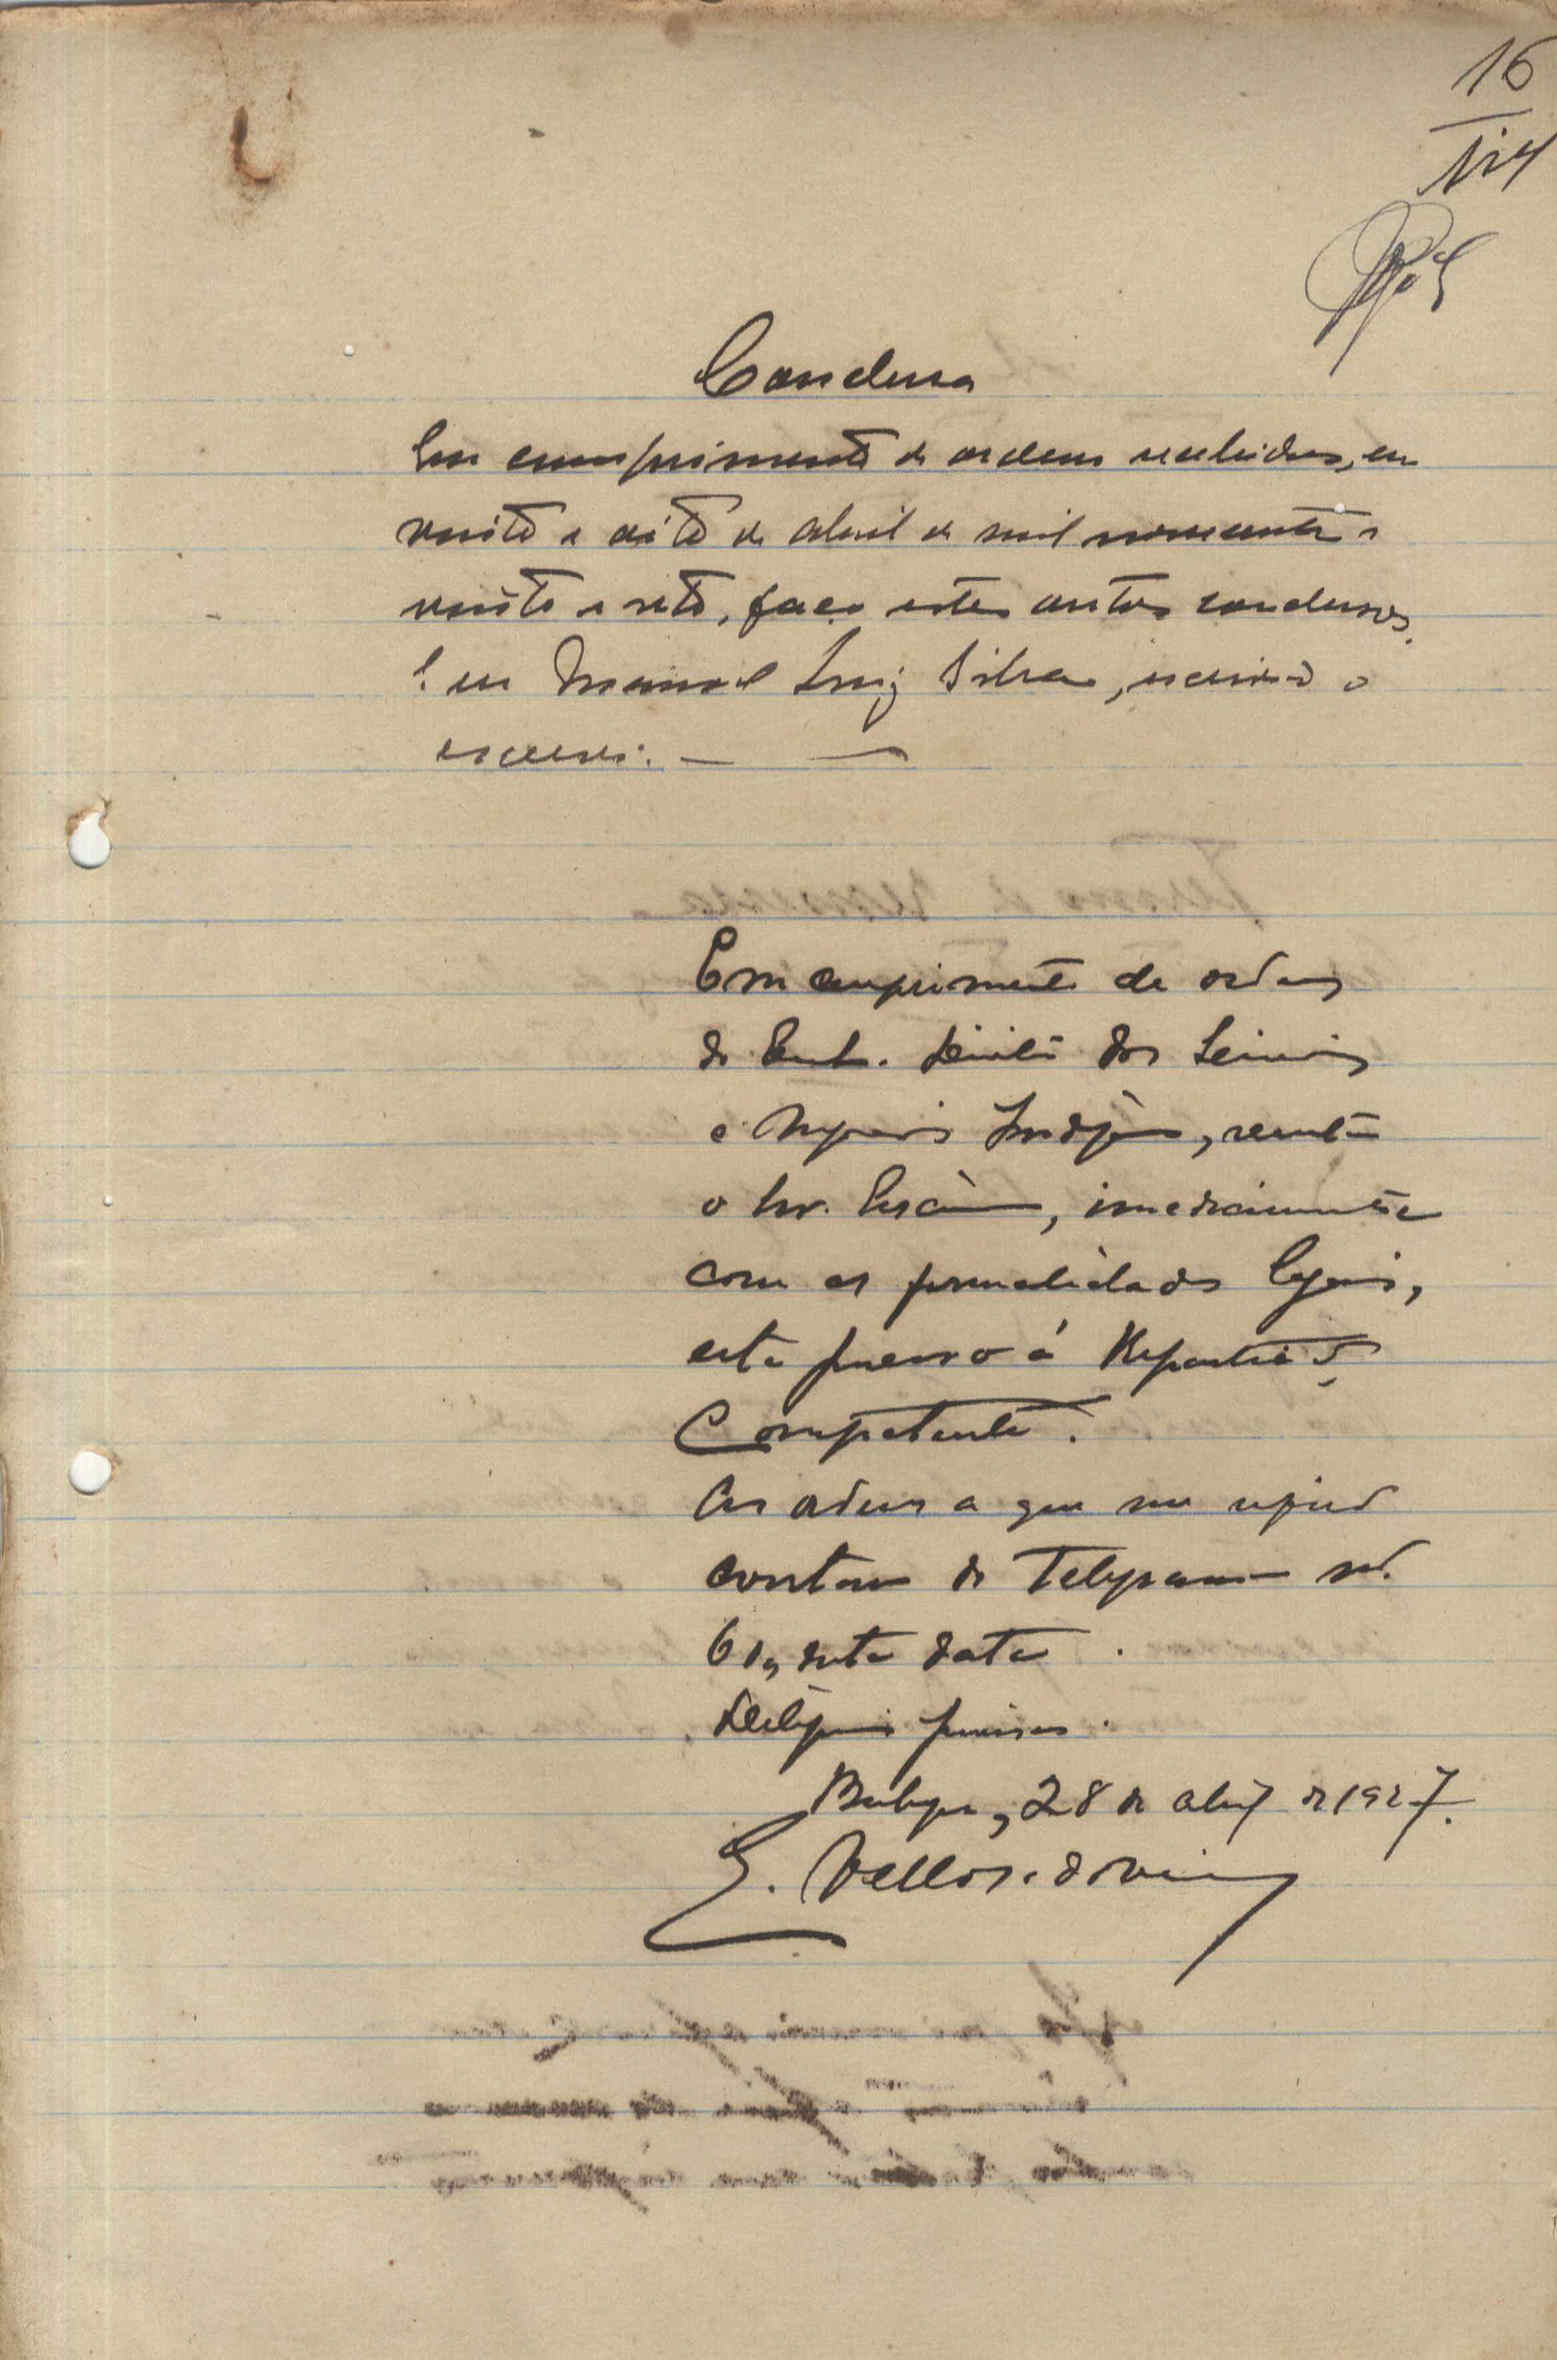 16
Conclusa
Em cumprimento de ordens recebidas, em
vinte e oito de Abril de mil novecentos e
vinte e sete, faço estes autos conclusos.
Eu Manoel Luiz Silva, escrivão o
escrevi.
Em cumprimento de ordens
do
e Indígenas, remeta
o Snr. Escrivão, immediatamente
com as formalidades legaes,
este processo á Repartição
Competente.
As ordens a que me refiro
constam do Telegramma nº.
61, desta data.
28 de abril de 1927.
E. Velloso